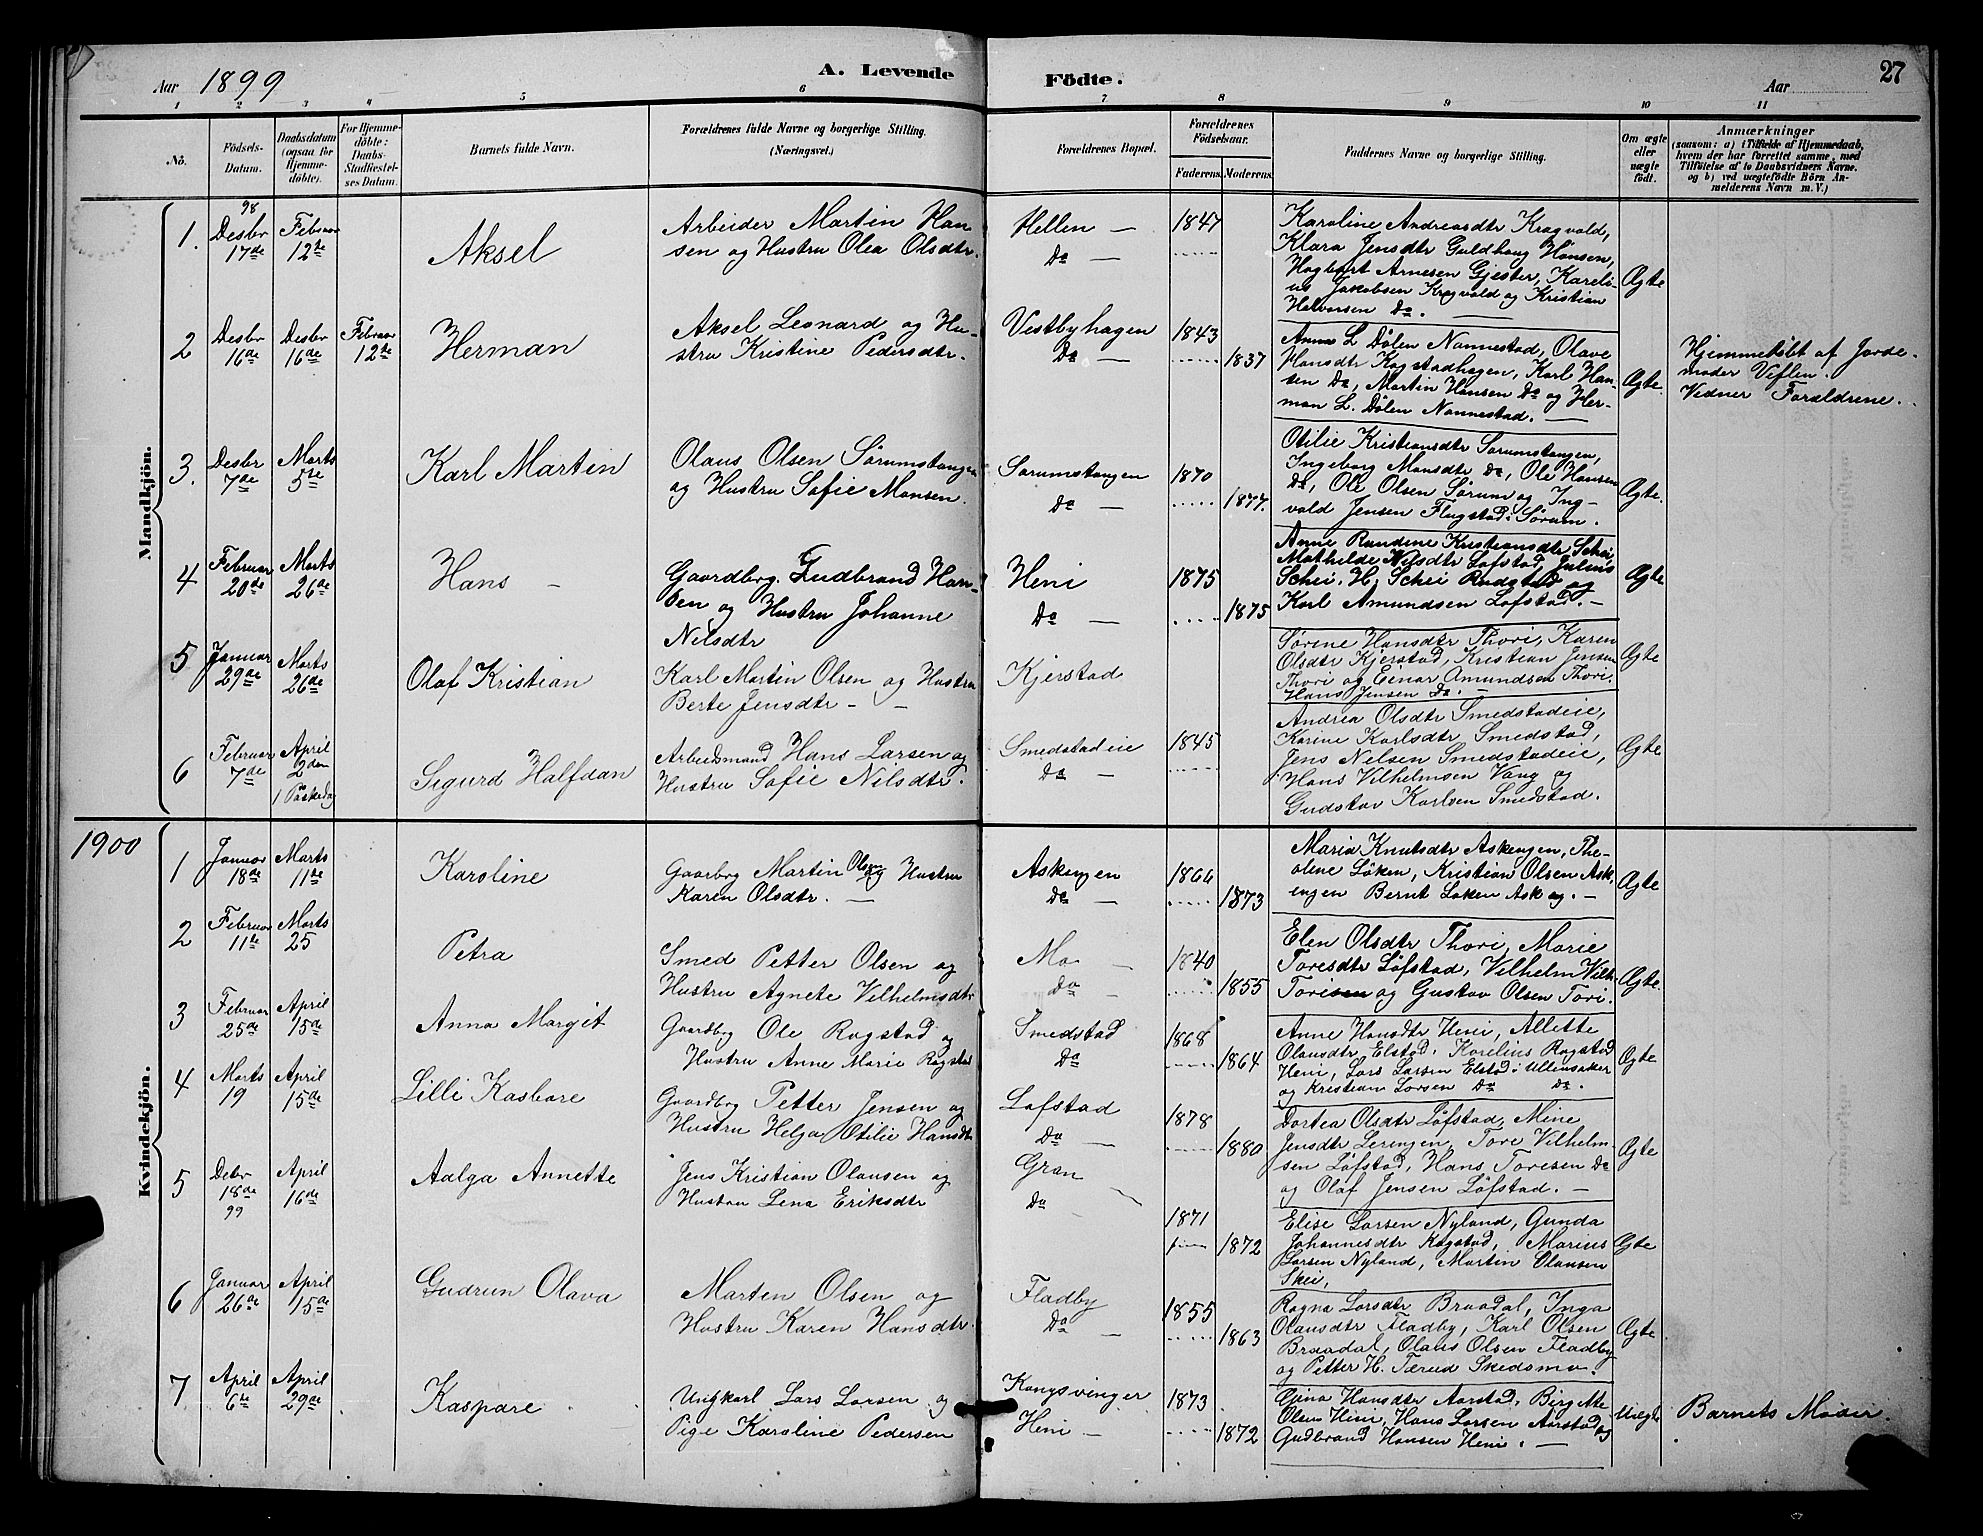 27
Aar 1899
A. Levende Födte.
Aar
1 2 3 4 5 6 7 8 9 10 11
No.
Födsels-
Datum.
Daabsdatum
(ogsaa for
Hjemme-
döbte).
For Hjemme-
döbte:
Daabs-
Stadfæstel-
ses Datum.
Barnets fulde Navn.
Forældrenes fulde Navne og borgerlige Stilling.
(Næringsvei.)
Forældrenes Bopæl.
Forældrenes
Födselsaar.
Faderens. Moderens.
Faddernes Navne og borgerlige Stilling.
Om ægte
eller
uægte
födt.
Anmærkninger
(saasom: a) i Tilfælde af Hjemmedaab,
hvem der har forrettet samme, med
Tilföielse af to Daabsvidners Navne.
og b) ved uægtefödte Börn An-
melderens Navn m. V.)
Mandkjön.
1. Desbr 98
17de
Februar
12te
Aksel
Arbeider Martin Han-
sen og Hustru Olea Olsdtr.
Hellen —
Do —
1847
Karoline Andreasdtr Kragvold,
Klara Jensdtr Guldhaug Hansen,
Hagbart Arnesen Gjester, Kareli-
us Jakobsen Kragvold og Kristian
Halvorsen Do.
Ægte
2 Desbr
16de
Desbr
16de
Februar
12te
Herman
Aksel Leonard og Hu-
stru Kristine Pedersdtr.
Vestbyhagen
Do —
1843
1837
Anne L Dølen Nannestad, Olave
Hansdtr Kogstadhagen, Karl Han-
sen Do, Martin Hansen Do og Her-
man L. Dølen Nannestad.
Ægte
Hjemmedøbt af Jorde-
moder Veflen.
Vidner Forældrene.
3. Desbr
7de
Marts
5te
Karl Martin
Olaus Olsen Sørumstangen
og Hustru Sofie Monsen.
Sørumstangen
Do —
1870
1877.
Otilie Kristiansdtr Sørumstangen,
Ingeborg Monsdtr Do, Ole Hansen
Do, Ole Olsen Sørum og Ing-
vald Jensen Flugstad: Sørum.
Ægte.
4 Februar
20de
Marts
26de
Hans —
Gaardbrg. Gudbrand Han-
sen og Hustru Johanne
Nilsdtr
Heni
Do —
1875
1875
Anne Randine Kristiansdtr Schei
Mathilde Nilsdtr Løfstad, Julius
Schei, H. Schei Rudstad og
Karl Amundsen Løfstad. —
Ægte
5 Januar
29de
Marts
26de
Olaf Kristian
Karl Martin Olsen og Hustru
Berte Jensdtr — —
Kjerstad
Sørine Hansdtr Thori, Karen
Olsdtr Kjerstad, Kristian Jensen
Thori og Einar Amundsen Thori.
Hans Jensen Do. —
Ægte
6 Februar
7de
April
2den
1 Påskedag
Sigurd Halfdan
Arbeidsmand Hans Larsen og
Hustru Sofie Nilsdtr.
Smedstadeie
Do —
1845
Andrea Olsdtr Smedstadeie,
Karine Karlsdtr Smedstad,
Jens Nelsen Smedstadeie,
Hans Vilhelmsen Vang og
Gudstav Karlsen Smedstad.
Ægte
1900
Kvindekjön.
1 Januar
18de
Marts
11te
Karoline
Gaarbrg Martin Olsen og Hustru
Karen Olsdtr. —
Askengen
Do —
1866
1873
Maria Knutsdtr Askengen, The-
oline Løken, Kristian Olsen Ask-
engen Bernt Løken Ask og. —
Ægte
2 Februar
11te
Marts
25
Petra
Smed Petter Olsen og
Hustru Agnete Vilhelmsdtr
Mo —
Do —
1840
1855
Elen Olsdtr Thori, Marie
Toresdtr Løfstad, Vilhelm Vilh.
Torisen og Gustav Olsen Tori.
Ægte.
3 Februar
25de
April
15de
Anna Margit
Gaardbrg Ole Rogstad og
Hustru Anne Marie Rogstad
Smedstad
Do
1868
1864
Anne Hansdtr Heni, Allette
Olausdtr Elstad, Korelius Rogstad
Heni, Lars Larsen Elstad i Ullensaker
og Kristian Larsen Do Do.
Ægte
4 Marts
19
April
15de
Lilli Kasbare
Gaardbrg Petter Jensen og
Hustru Helga Otilie Hansdtr
Løfstad
Do —
1878
1880
Dortea Olsdtr Løfstad, Mine
Jensdtr Lerengen, Tore Vilhelm-
sen Løfstad, Hans Toresen Do
og Olaf Jensen Løfstad. —
Ægte
5 Debr
18de
99
April
16de
Aalga Annette
Jens Kristian Olausen og
Hustru Lena Eriksdtr
Gran
Do
1871
1872
Elise Larsen Nyland, Gunda
Johannesdtr Kogstad, Marius
Larsen Nyland, Martin Olausen
Skei,
Ægte
6 Januar
26de
April
15de
Gudrun Olava
Marten Olsen og
Hustru Karen Hansdtr.
Fladby
Do —
1855
1863
Ragna Larsdtr Braadal, Inga
Olausdtr Fladby, Karl Olsen
Braadal, Olaus Olsen Fladby
og Petter H. Tærud Skedsmo.
Ægte
7 April
6te
April
29de
Kaspare
Ungkarl Lars Larsen og
Pige Karoline Pedersen
Kongsvinger
Heni —
1873
1872
Gina Hansdtr Aarstad, Birgitte
Olsen Heni, Hans Larsen Aarstad og
Gudbrand Hansen Heni. —
Uægte
Barnets Moder.